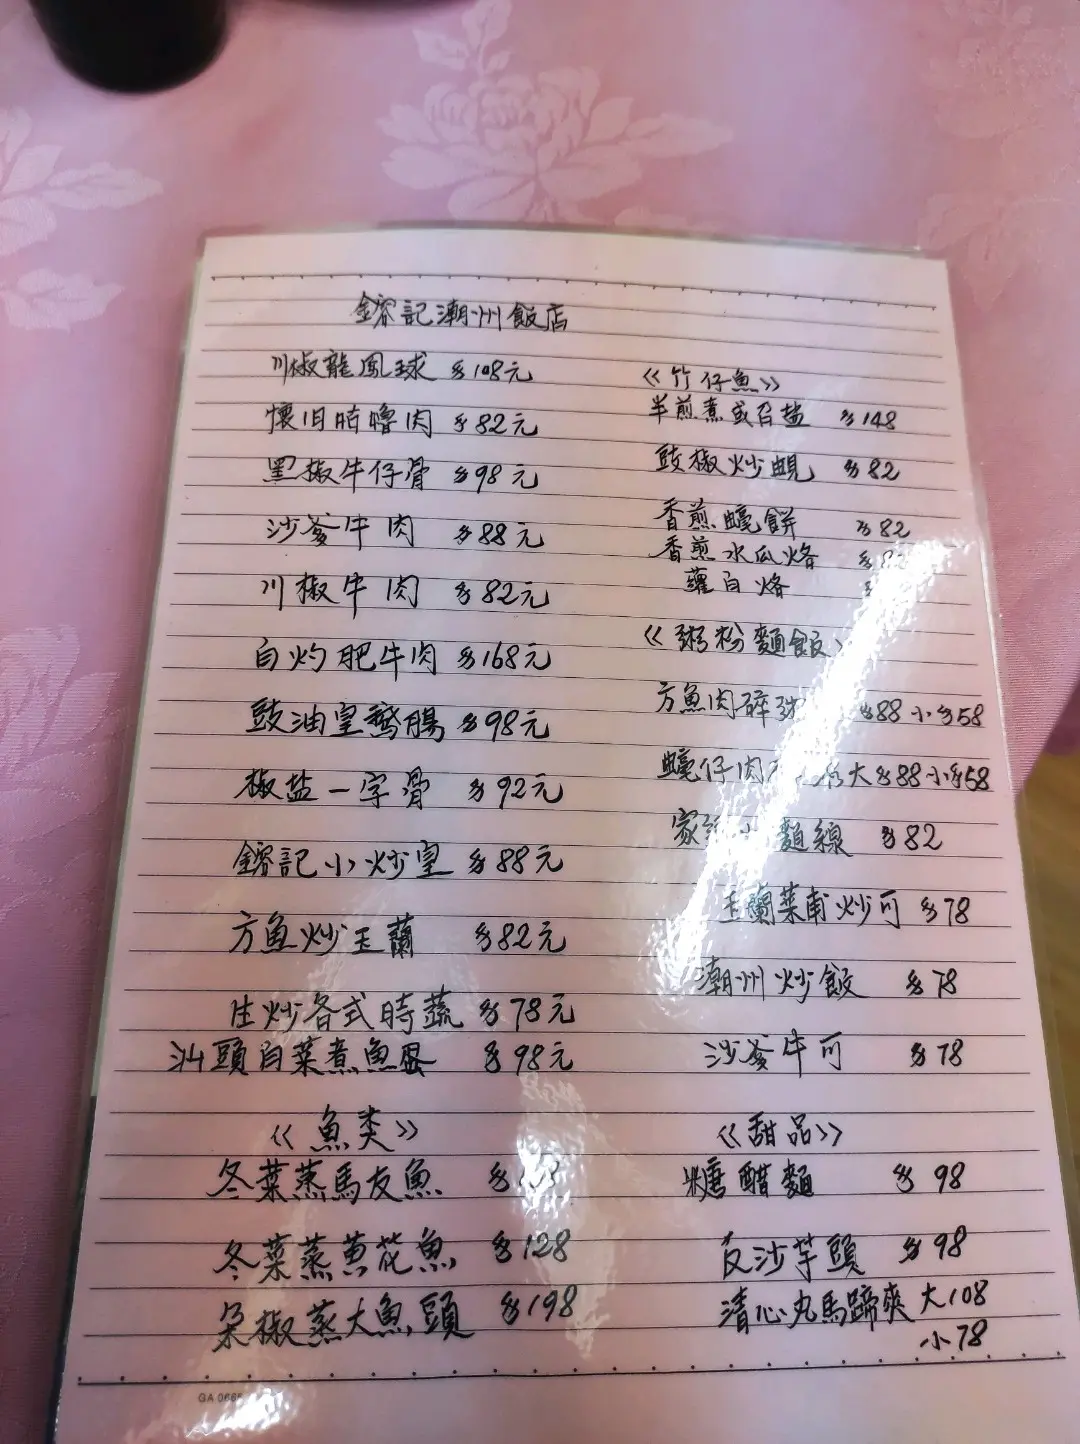 鎔記潮州飯店
川椒龍鳳球 $108元
懷旧咕嚕肉 $82元
黑椒牛仔骨 $98元
沙爹牛肉 $88元
川椒牛肉 $82元
白灼肥牛肉 $168元
豉油皇鵝腸 $98元
椒盐一字骨 $92元
鎔記小炒皇 $88元
方魚炒玉蘭 $82元
生炒各式時蔬 $78元
汕頭白菜煮魚蛋 $98元
《魚类》
冬菜蒸馬友魚
冬菜蒸黄花魚 $128
朵椒蒸大魚頭 $198
《竹仔魚》
半煎煮或召盐 $148
豉椒炒蜆 $82
香煎蠔餅 $82
香煎水瓜烙
蘿白烙
《粥粉麵飯》
方魚肉碎 $88 小$58
蠔仔肉 大$88 小$58
家 麵線 $82
玉蘭菜甫炒可 $78
潮州炒飯 $78
沙爹牛可 $78
《甜品》
糖醋麵 $98
反沙芋頭 $98
清心丸馬蹄爽 大108
小78